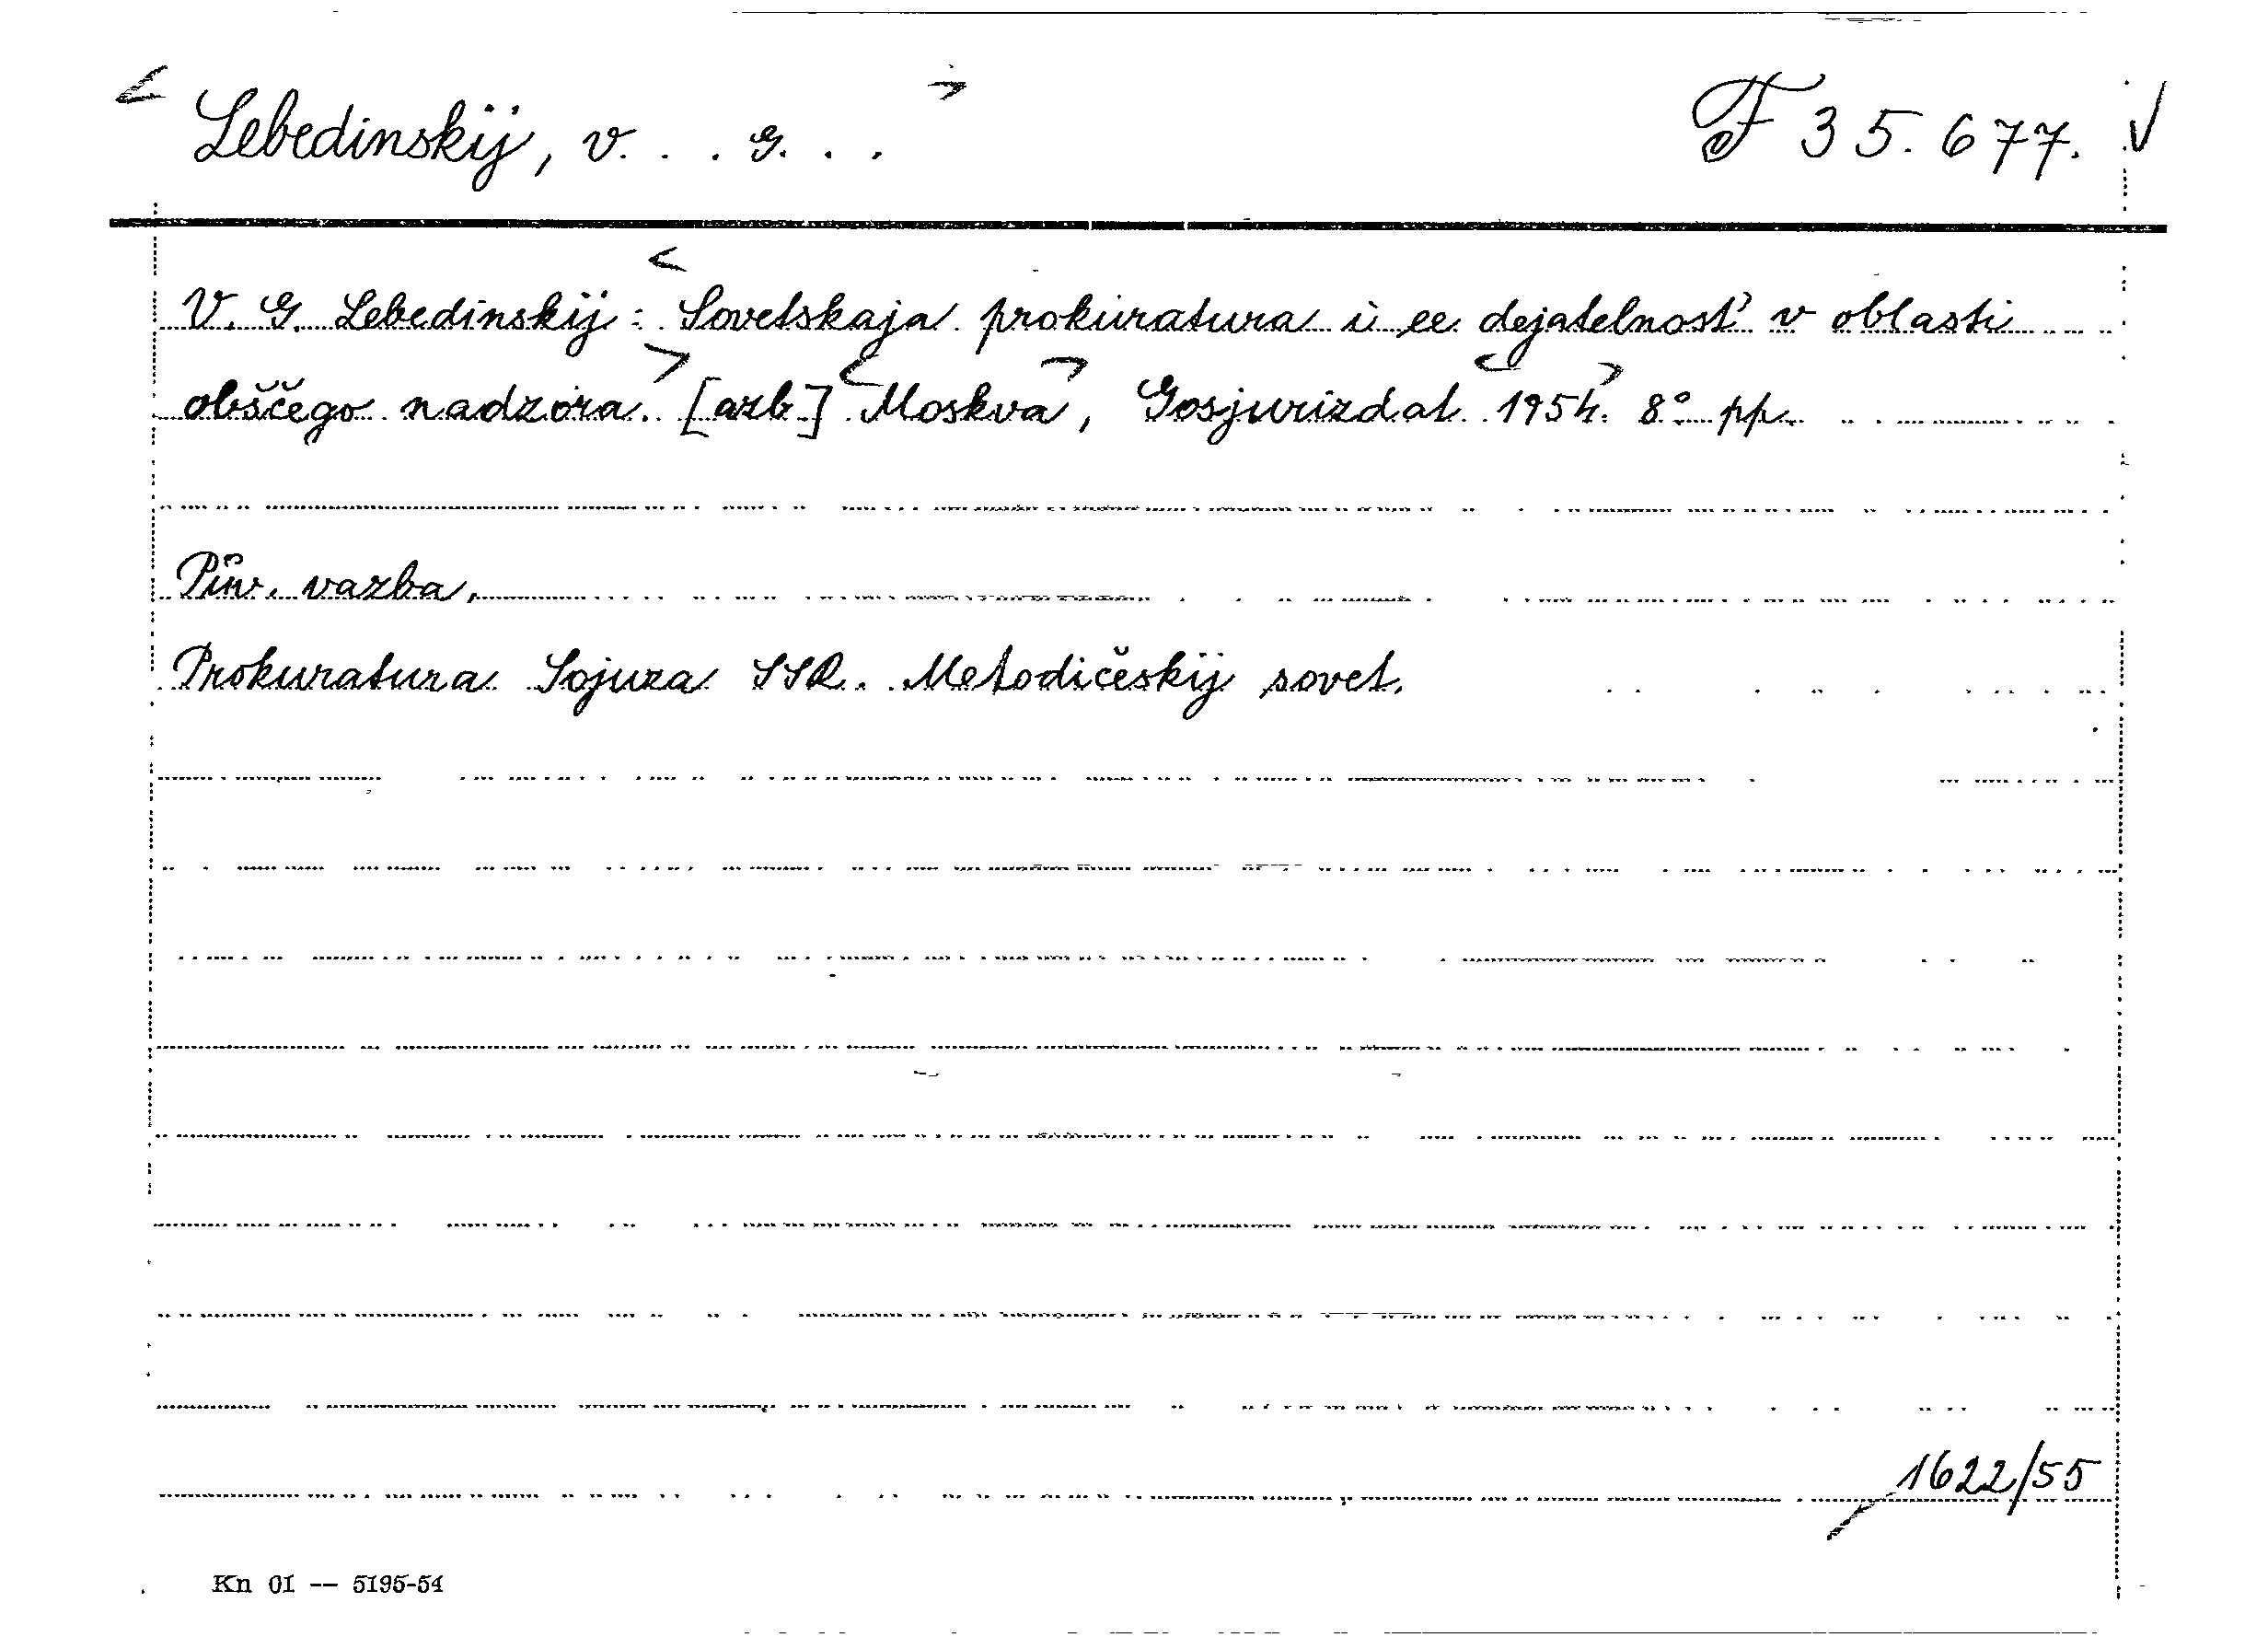 < Lebedinskij, V. . . G. . . > F 35.677. √
V. G. Lebedinskij: <Sovetskaja prokuratura i ee dejatelnost' v oblasti
obščego nadzora.> [azb.] <Moskva>, Gosjurizdat <1954.> 8° pp.
Pův. vazba.
Prokuratura Sojuza SSR. Metodičeskij sovet.
1622/55
Kn 01 -- 5195-54